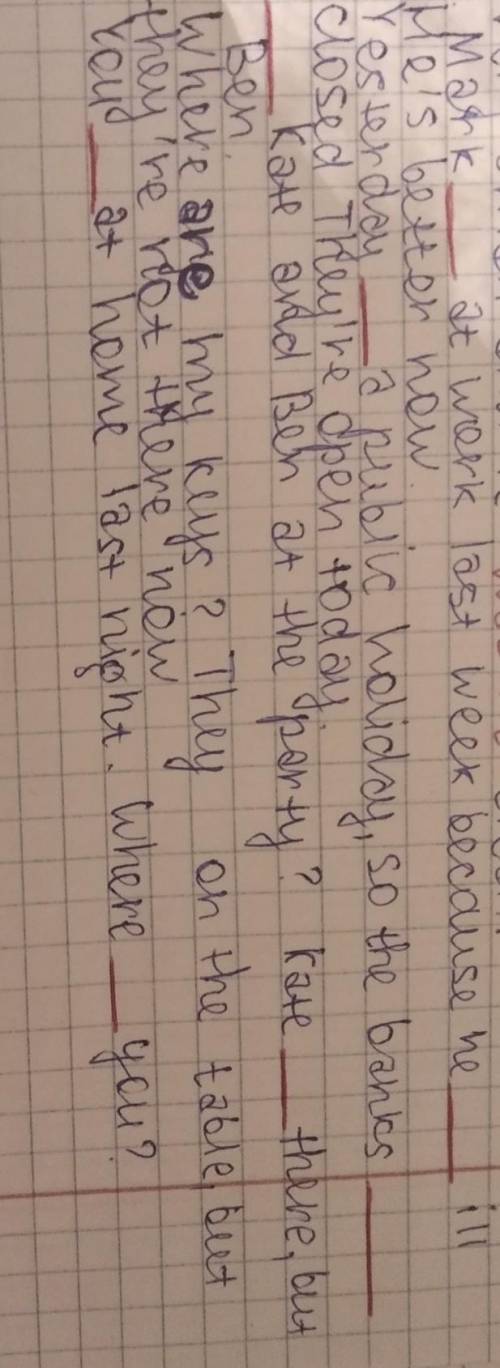 Mark ___ at work last week because he ___ ill
He's better now.
Yesterday ___ a public holiday, so the banks ___
closed They're open today.
___ Kate and Ben at the party? Kate ___ there, but
Ben
Where are my keys? They on the table, but
they're not there now
You ___ at home last night. Where ___ you?